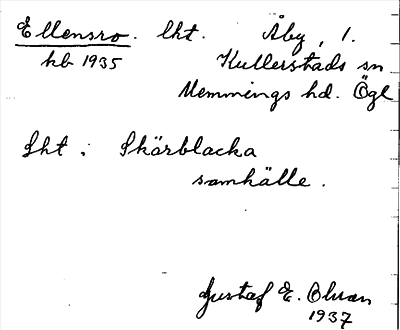 Ellensro. lht. Åby, 1.
hb 1935 Kullerstads sn
Memmings hd. Ögl
Lht i Skärblacka
samhälle.
Gustaf E. Olson
1937